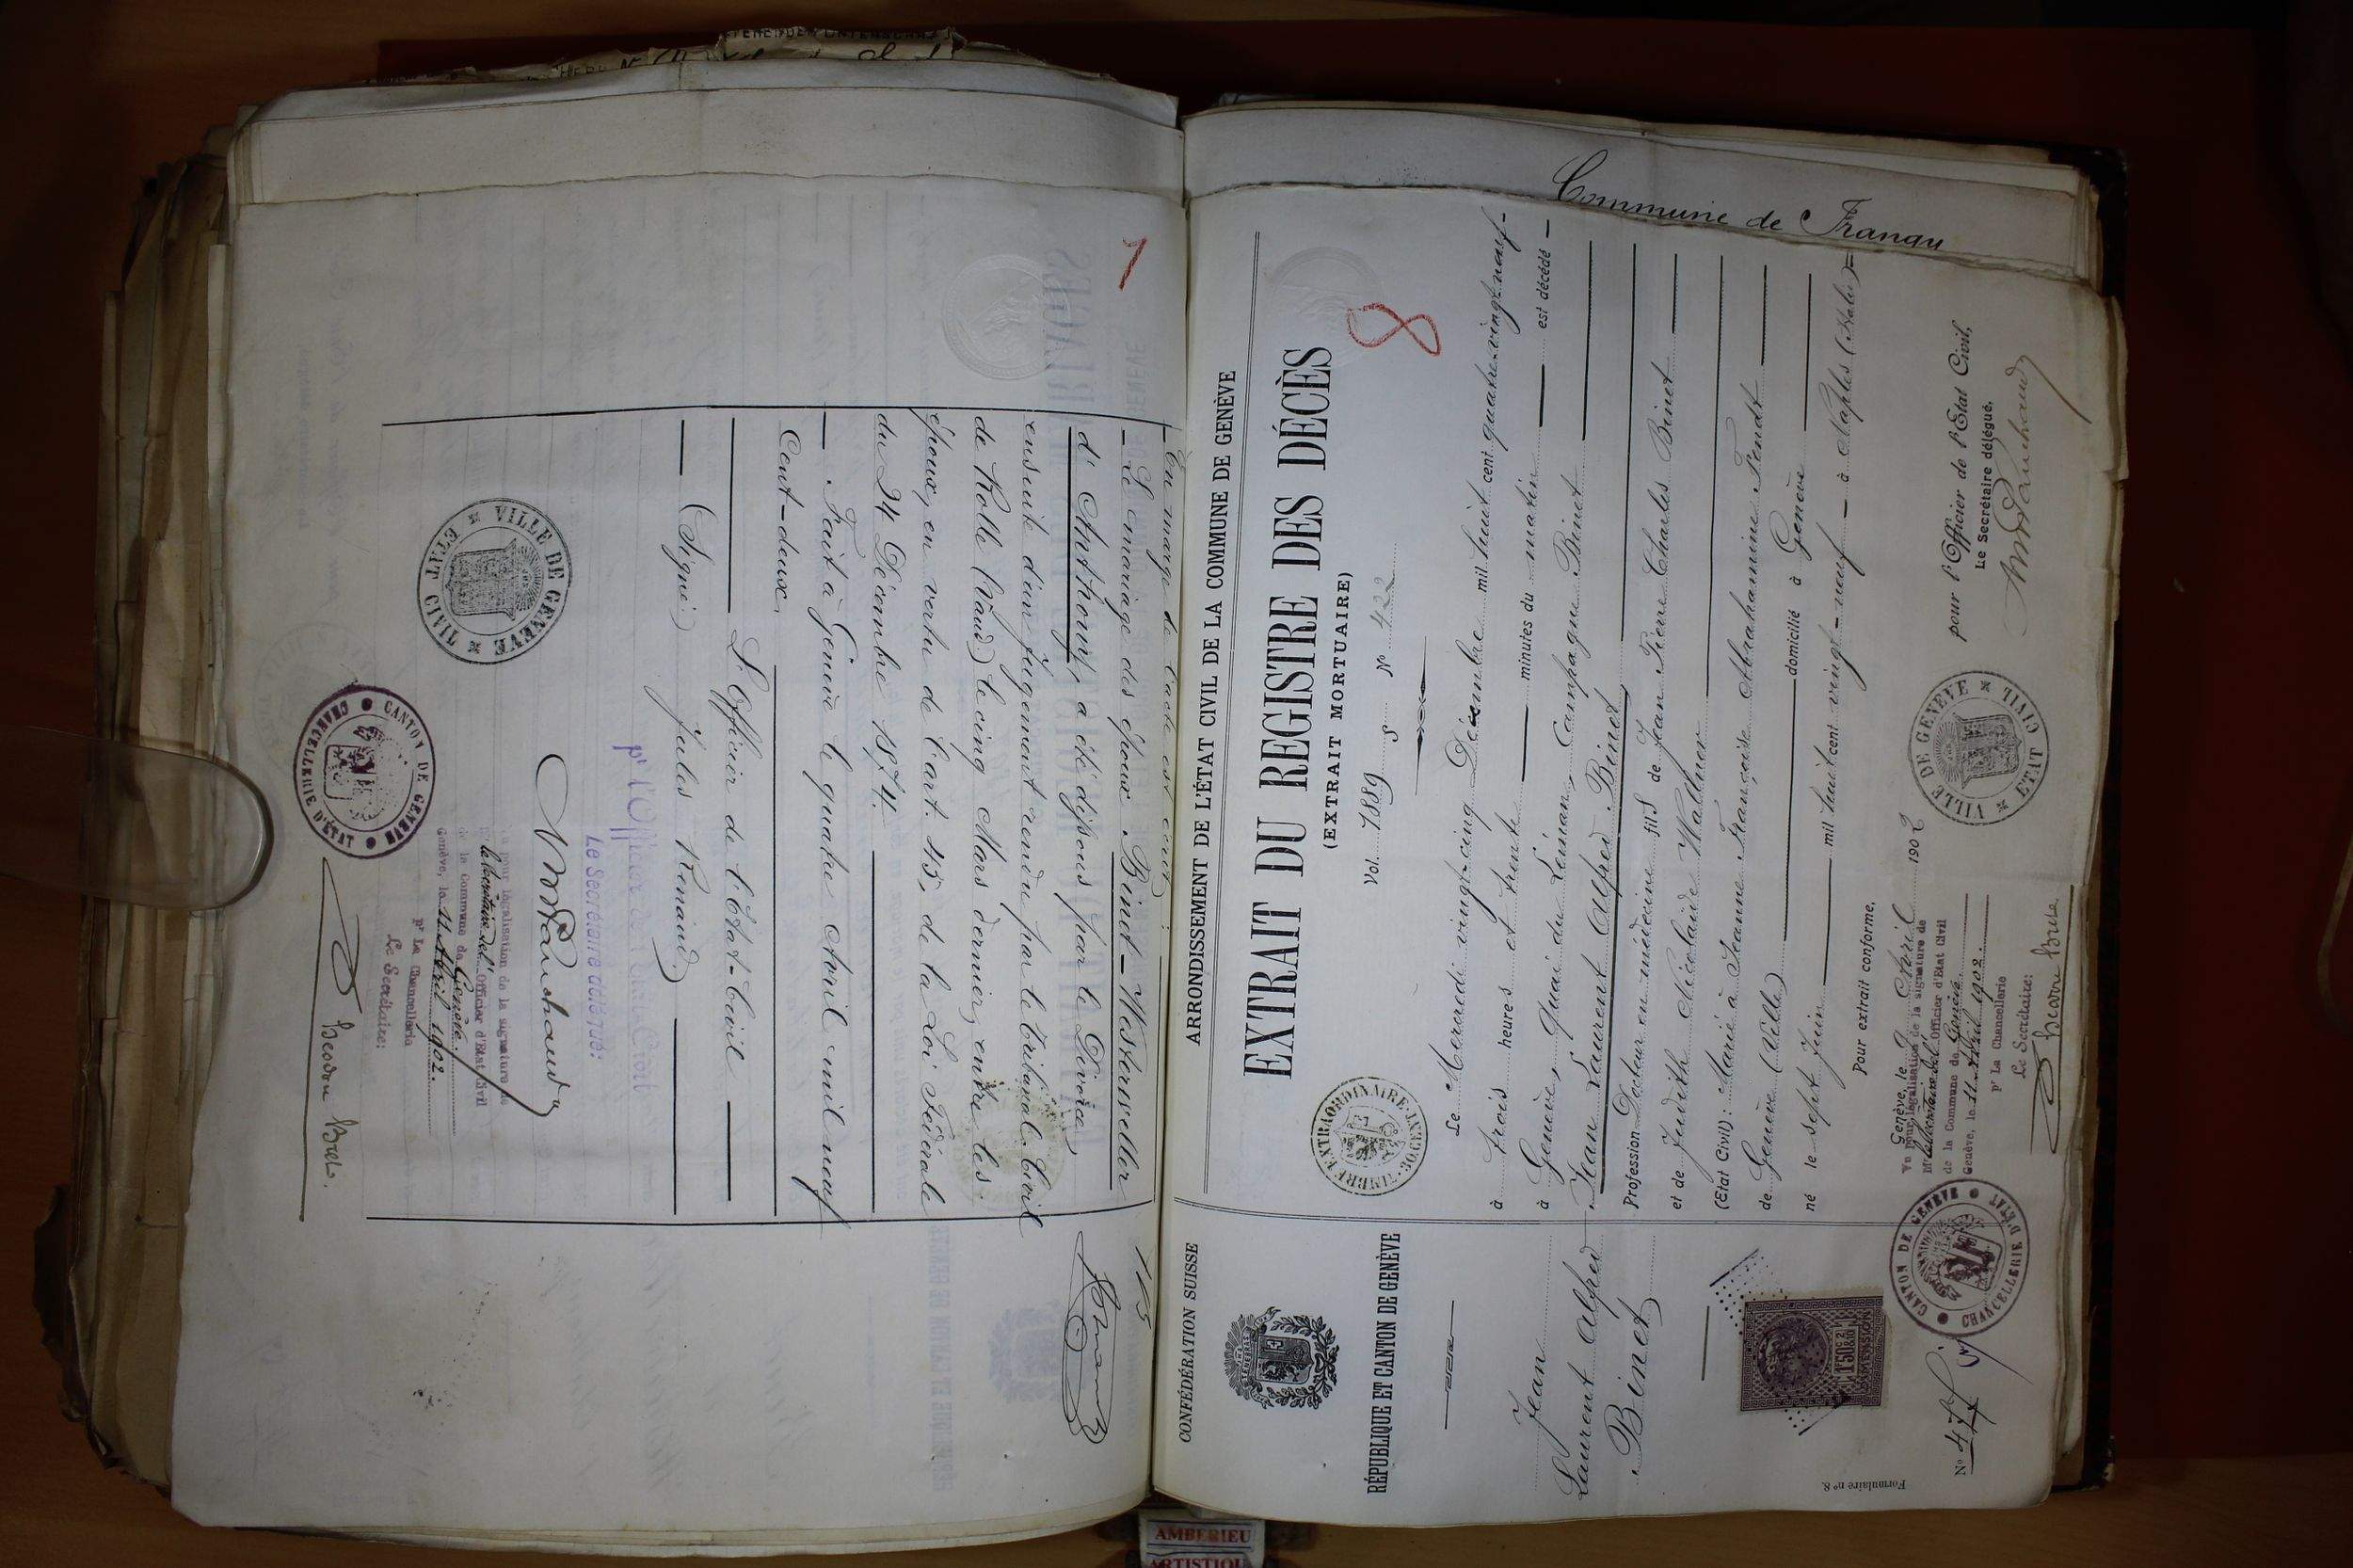 En marge de l'acte est écrit :
— Le mariage des époux Binet-Westerweller
d'Anthony, a été dissous par le Divorce,
ensuite d'un jugement rendu par le Tribunal Civil
de Rolle (Vaud) le cinq Mars dernier, entre les
époux, en vertu de l'art. 45, de la Loi Fédérale
du 24 Décembre 1874.
— Fait à Genève le quatre Avril mil neuf
Cent-deux.
L'Officier de l'Etat-Civil
(Signé) Jules Renaud.
pr l'Officier de l'Etat-Civil
Le Secrétaire délégué:
VILLE DE GENÈVE
ETAT CIVIL
légalisation de la signature de
Officier d'Etat Civil
de la Commune de Genève.
Genève, le 11 Avril 1902.
pr La Chancellerie
Le Secrétaire:
CANTON DE GENÈVE
CHANCELLERIE D'ÉTAT
Commune de
CONFÉDÉRATION SUISSE
RÉPUBLIQUE ET CANTON DE GENÈVE
Jean
Laurent Alfred
Binet
DIMENSION
No 47
Formulaire no 8.
ARRONDISSEMENT DE L'ÉTAT CIVIL DE LA COMMUNE DE GENÈVE
EXTRAIT DU REGISTRE DES DÉCÈS
(EXTRAIT MORTUAIRE)
8
Vol. 1889 No 422
Le Mercredi vingt-cinq Décembre mil huit cent quatre-vingt-neuf
à trois heures et trente minutes du matin est décédé
à Genève, Quai du Léman, Campagne Binet
Jean Laurent Alfred Binet
Profession Docteur en médecine fils de Jean Pierre Charles Binet
et de Judith Nicolaïde Wallner
(Etat Civil): Marié à Jeanne Françoise Abrahamine Fendt
de Genève (Ville) domicilié à Genève
né le sept Juin mil huit cent vingt-neuf à Naples (Italie)
Pour extrait conforme,
Genève, le 9 Avril 1902
pour l'Officier de l'Etat Civil,
Le Secrétaire délégué,
VILLE DE GENÈVE
ETAT CIVIL
Vu pour légalisation de la signature de
Officier d'Etat Civil
de la Commune de Genève.
Genève, le 11 Avril 1902.
pr La Chancellerie
Le Secrétaire:
CANTON DE GENÈVE
CHANCELLERIE D'ÉTAT
AMBERIEU